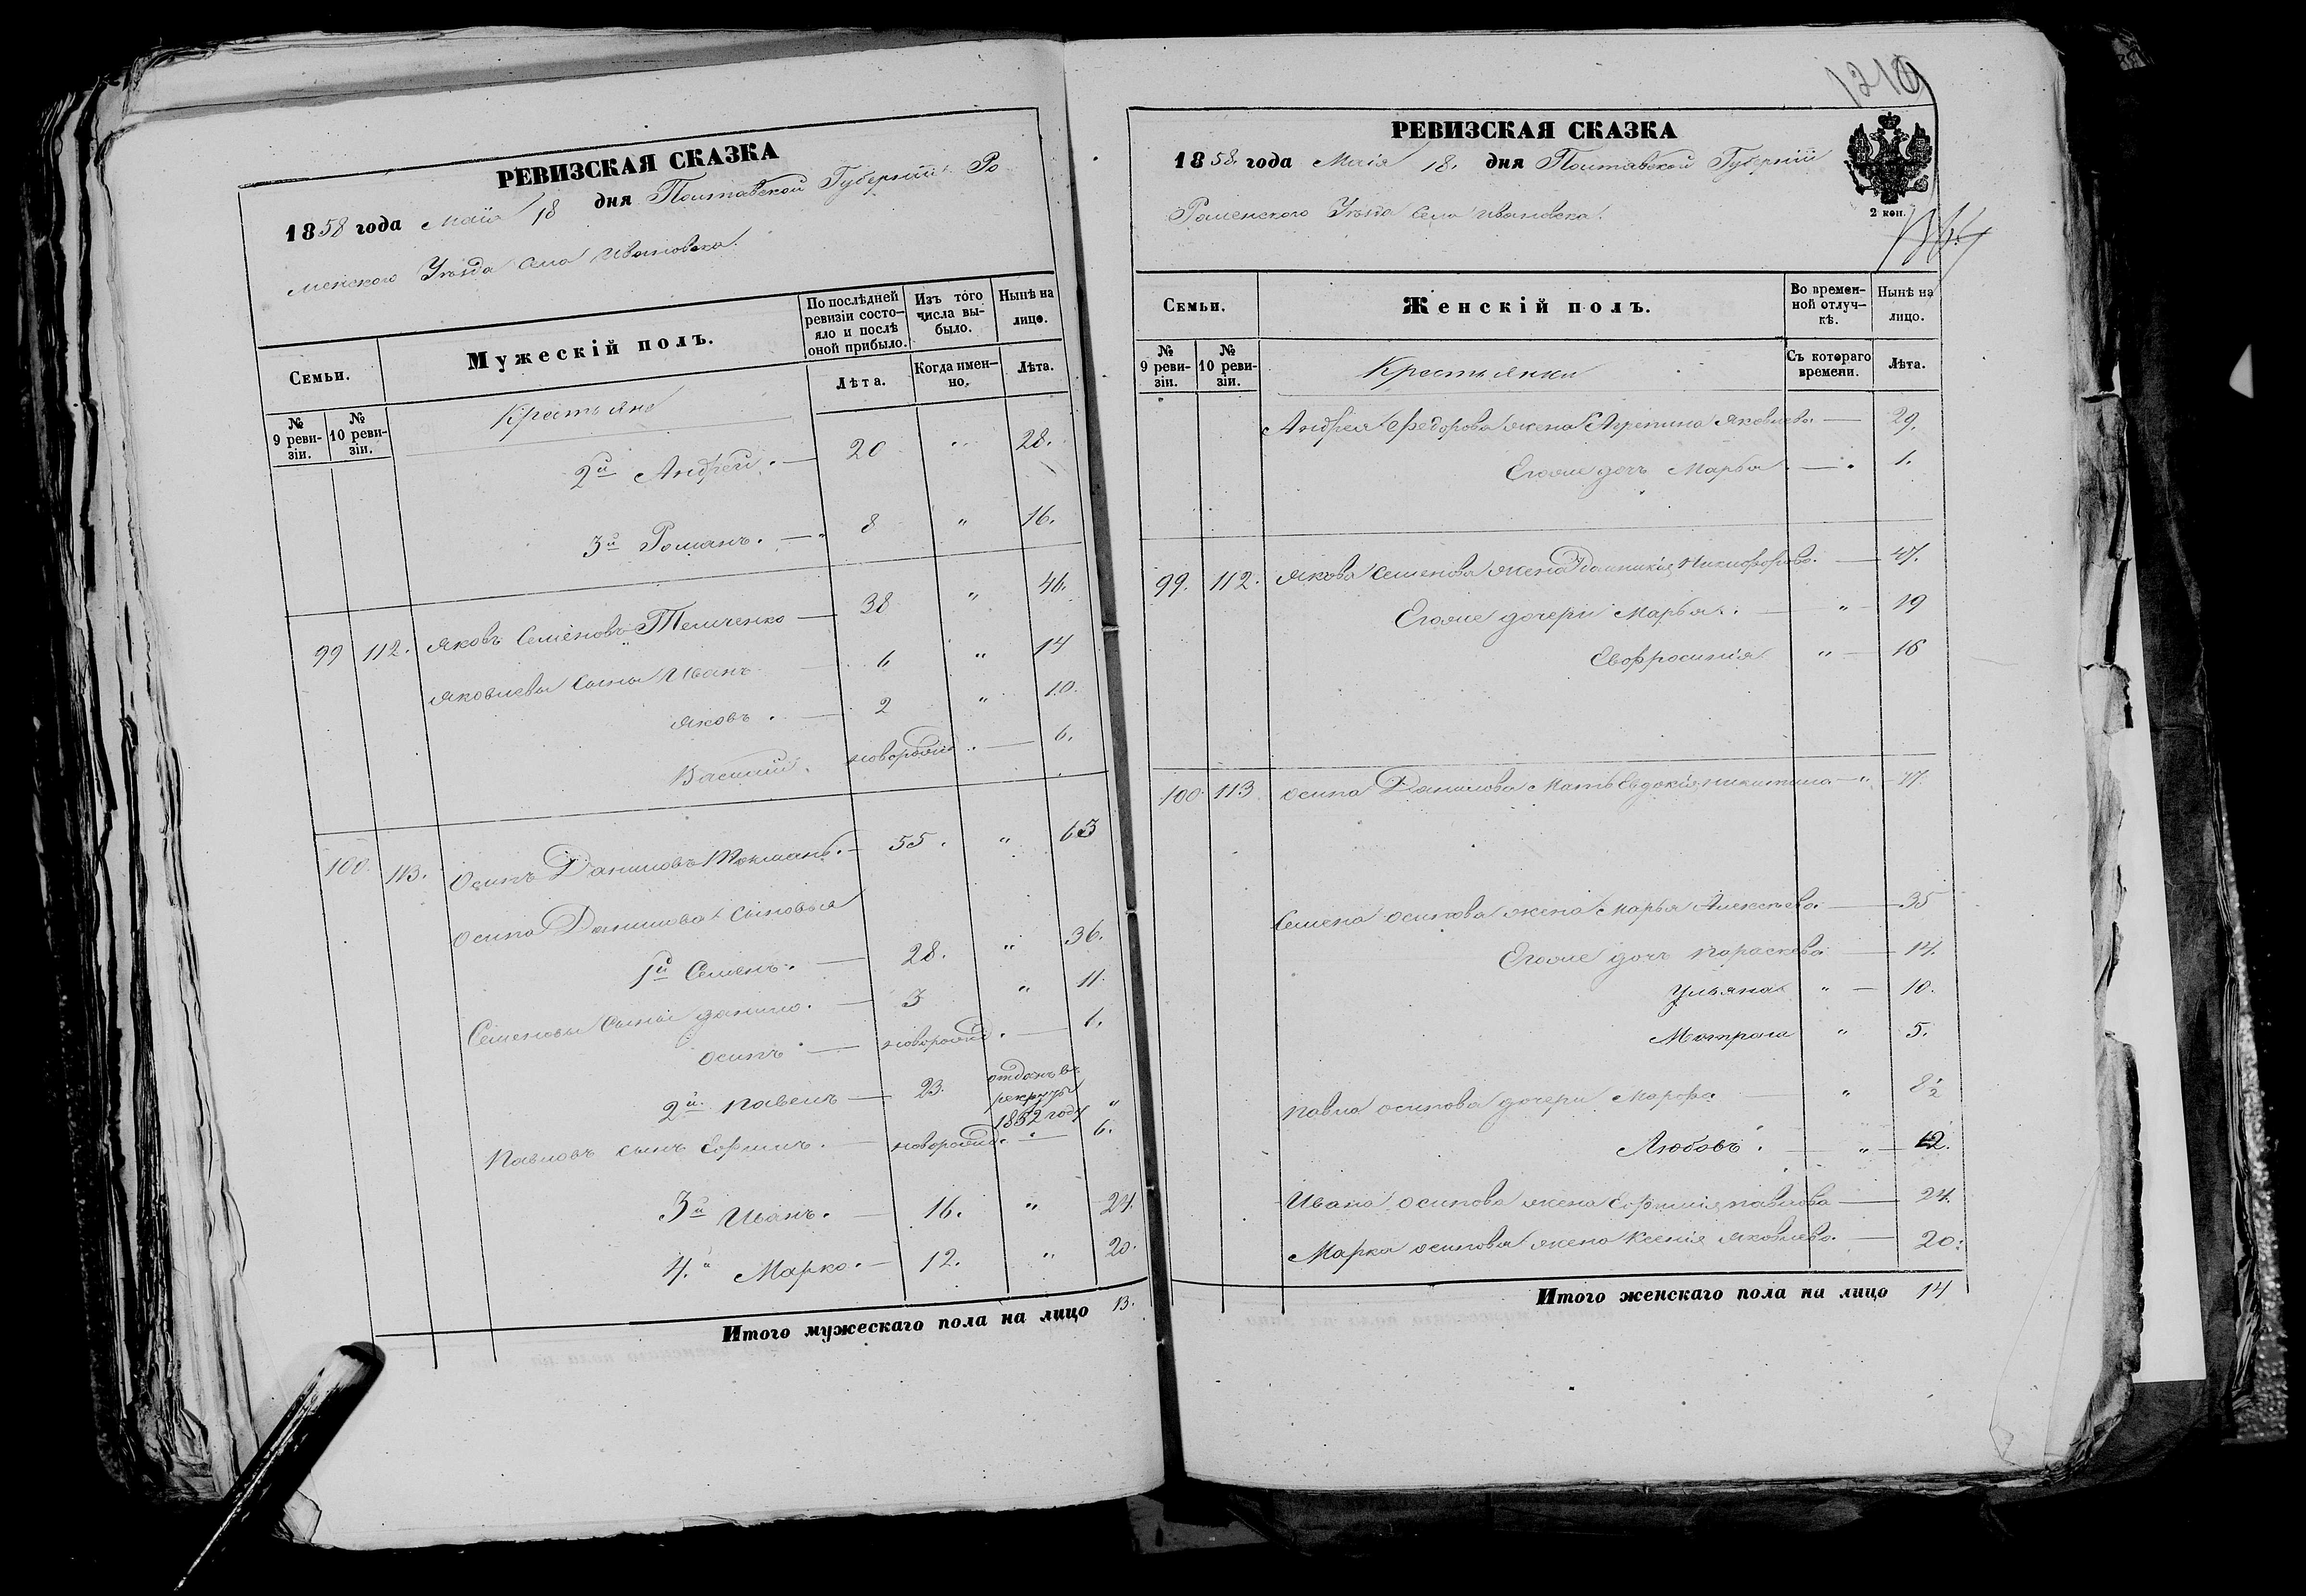 РЕВИЗСКАЯ СКАЗКА
1858 года Маія 18 дня Полтавской Губерніи Ро
менского Уѣзда Села Ивановска.
Семьи.
Мужескій полъ.
По послѣдней ревизіи состояло и послѣ оной прибыло.
Изъ того числа выбыло.
Нынѣ на лицо.
№ 9 ревизіи.
№ 10 ревизіи.
Крестьяне
Лѣта.
Когда именно.
Лѣта.
2й Андрей. — 20 " 28.
3й Романъ. — 8 " 16.
99 112. Яковъ Семеновъ Темченко — 38 " 46.
Яковлевы сыны Иванъ — 6 " 14
Яковъ. — 2 " 10.
Василий. новорожд. — 6.
100. 113. Осипъ Даниловъ — 55. " 63
Осипа Данилова сыновья
1й Семенъ. — 28. " 36.
Семеновы сыны Данило. — 3 " 11.
Осипъ — новорожд. — 1.
2й Павелъ — 23. отданъ въ рекруты 1852 году "
Павловъ сынъ Ефимъ. — новорожд. " — 6.
3й Иванъ. — 16. " 24.
4й Марко. — 12. " 20.
Итого мужескаго пола на лицо 13.
РЕВИЗСКАЯ СКАЗКА
1858. года Маія 18. дня Полтавской Губерніи
Роменского Уѣзда Села Ивановска.
2 коп.
Семьи.
Женскій полъ.
Во временной отлучкѣ.
Нынѣ на лицо.
№ 9 ревизіи.
№ 10 ревизіи.
Крестьянки
Съ котораго времени.
Лѣта.
Андрея Федорова жена Агрепина Яковлева — 29.
Егоже дочь Марья — 1.
99. 112. Якова Семенова жена Домникія Никифорова. — 47.
Егоже дочери Марья. — " 19
Евфросинія " — 16
100. 113. Осипа Данилова Мать Евдокія Никитина — "
Семена Осипова жена Марья Алексѣева — 35
Егоже дочь Параскева — 14.
Ульяна " — 10.
Мотрона " 5.
Павла Осипова дочери Марфа " 8 1/2
Любовь. — " — 12.
Ивана Осипова жена Ефимія Павлова — 24.
Марка Осипова жена Ксенія Яковлева. — 20.
Итого женскаго пола на лицо 14